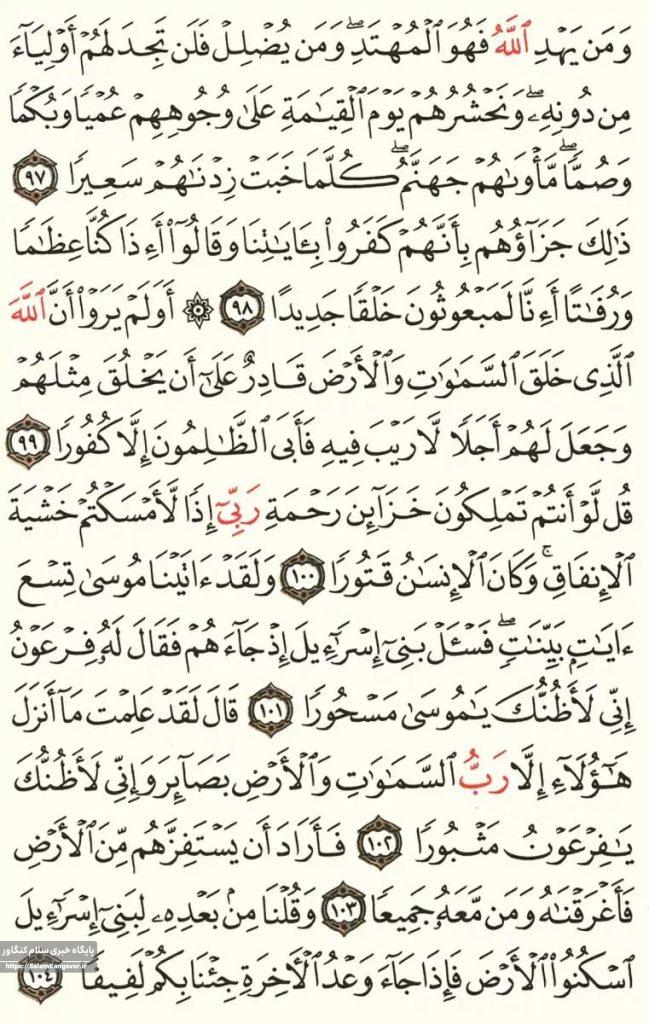 وَمَن يَهْدِ ٱللَّهُ فَهُوَ ٱلْمُهْتَدِۖ وَمَن يُضْلِلْ فَلَن تَجِدَ لَهُمْ أَوْلِيَآءَ
مِن دُونِهِۦۖ وَنَحْشُرُهُمْ يَوْمَ ٱلْقِيَـٰمَةِ عَلَىٰ وُجُوهِهِمْ عُمْيًا وَبُكْمًا
وَصُمًّاۖ مَّأْوَىٰهُمْ جَهَنَّمُۖ كُلَّمَا خَبَتْ زِدْنَـٰهُمْ سَعِيرًا ٩٧
ذَٰلِكَ جَزَآؤُهُم بِأَنَّهُمْ كَفَرُوا۟ بِـَٔايَـٰتِنَا وَقَالُوٓا۟ أَءِذَا كُنَّا عِظَـٰمًا
وَرُفَـٰتًا أَءِنَّا لَمَبْعُوثُونَ خَلْقًا جَدِيدًا ٩٨ ۞ أَوَلَمْ يَرَوْا۟ أَنَّ ٱللَّهَ
ٱلَّذِى خَلَقَ ٱلسَّمَـٰوَٰتِ وَٱلْأَرْضَ قَادِرٌ عَلَىٰٓ أَن يَخْلُقَ مِثْلَهُمْ
وَجَعَلَ لَهُمْ أَجَلًا لَّا رَيْبَ فِيهِ فَأَبَى ٱلظَّـٰلِمُونَ إِلَّا كُفُورًا ٩٩
قُل لَّوْ أَنتُمْ تَمْلِكُونَ خَزَآئِنَ رَحْمَةِ رَبِّىٓ إِذًا لَّأَمْسَكْتُمْ خَشْيَةَ
ٱلْإِنفَاقِۚ وَكَانَ ٱلْإِنسَـٰنُ قَتُورًا ١٠٠ وَلَقَدْ ءَاتَيْنَا مُوسَىٰ تِسْعَ
ءَايَـٰتٍۭ بَيِّنَـٰتٍۖ فَسْـَٔلْ بَنِىٓ إِسْرَٰٓءِيلَ إِذْ جَآءَهُمْ فَقَالَ لَهُۥ فِرْعَوْنُ
إِنِّى لَأَظُنُّكَ يَـٰمُوسَىٰ مَسْحُورًا ١٠١ قَالَ لَقَدْ عَلِمْتَ مَآ أَنزَلَ
هَـٰٓؤُلَآءِ إِلَّا رَبُّ ٱلسَّمَـٰوَٰتِ وَٱلْأَرْضِ بَصَآئِرَ وَإِنِّى لَأَظُنُّكَ
يَـٰفِرْعَوْنُ مَثْبُورًا ١٠٢ فَأَرَادَ أَن يَسْتَفِزَّهُم مِّنَ ٱلْأَرْضِ
فَأَغْرَقْنَـٰهُ وَمَن مَّعَهُۥ جَمِيعًا ١٠٣ وَقُلْنَا مِنۢ بَعْدِهِۦ لِبَنِىٓ إِسْرَٰٓءِيلَ
ٱسْكُنُوا۟ ٱلْأَرْضَ فَإِذَا جَآءَ وَعْدُ ٱلْـَٔاخِرَةِ جِئْنَا بِكُمْ لَفِيفًا ١٠٤
پایگاه خبری سلام کنگاور
https://SalamKangavar.ir